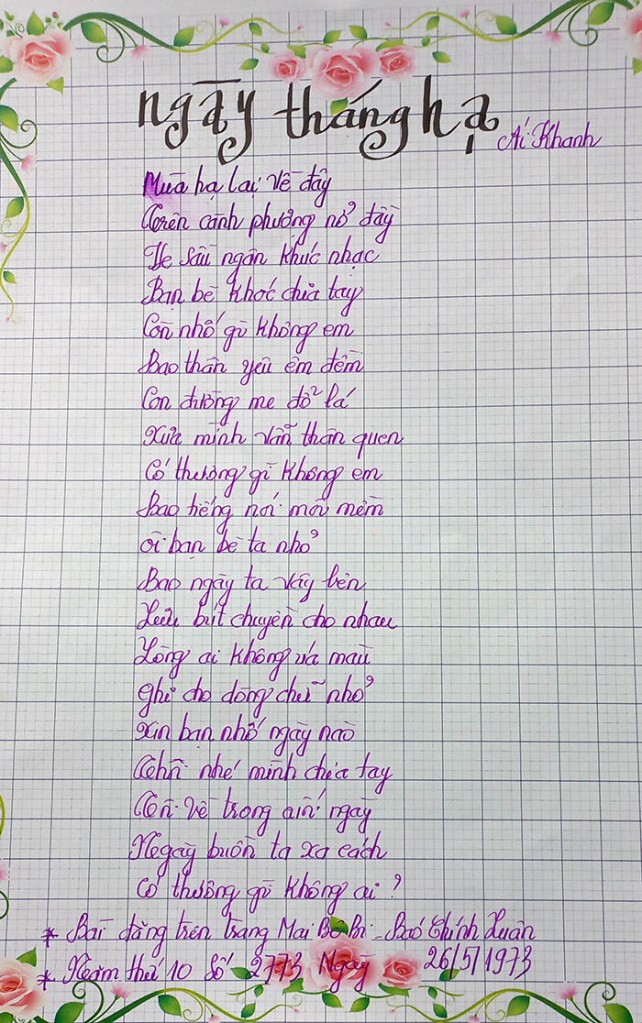 ngày tháng hạ
Ái Khanh
Mùa hạ lại về đây
Trên cành phượng nở đầy
Ve sầu ngân khúc nhạc
Bạn bè khóc chia tay
Còn nhớ gì không em
Bao thân yêu êm đềm
Con đường me đổ lá
Xưa mình vẫn thân quen
Có thương gì không em
Bao tiếng nói môi mềm
ơi bạn bè ta nhỏ
Bao ngày ta vây bên
Lưu bút chuyền cho nhau
Lòng ai không úa màu
Ghi cho dòng chữ nhỏ
Xin bạn nhớ ngày nào
Thôi nhé mình chia tay
Còn về trong ngày
Ngày buồn ta xa cách
Có thương gì không ai ?
* Bài đăng trên trang Mai Bê Bi - Báo Chính Luận
* Năm thứ 10 Số 2773 Ngày 26/5/1973